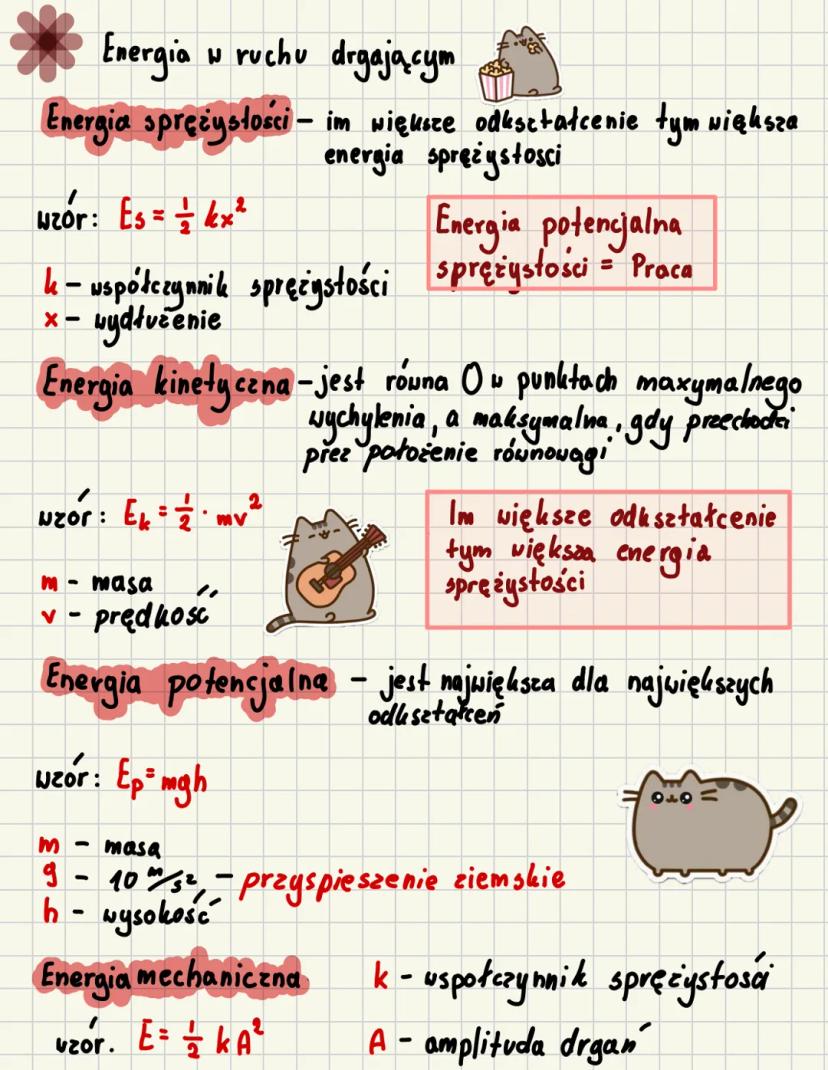 Energia w ruchu drgającym
Energia sprężystości – im większe odkształcenie tym większa
energia sprężystosci
wzór: Es = 1/2 kx²
Energia potencjalna
sprężystości = Praca
k – współczynnik sprężystości
x – wydłużenie
Energia kinetyczna – jest równa 0 w punktach maxymalnego
wychylenia, a maksymalna, gdy przechodzi
prez położenie równowagi
wzór: Ek = 1/2 · mv²
Im większe odkształcenie
tym większa energia
sprężystości
m – masa
v – prędkość
Energia potencjalna – jest największa dla największych
odkształceń
wzór: Ep = mgh
m – masa
g – 10 m/s², – przyspieszenie ziemskie
h – wysokość
Energia mechaniczna
k – wspołczynnik sprężystości
wzór. E = 1/2 kA²
A – amplituda drgań